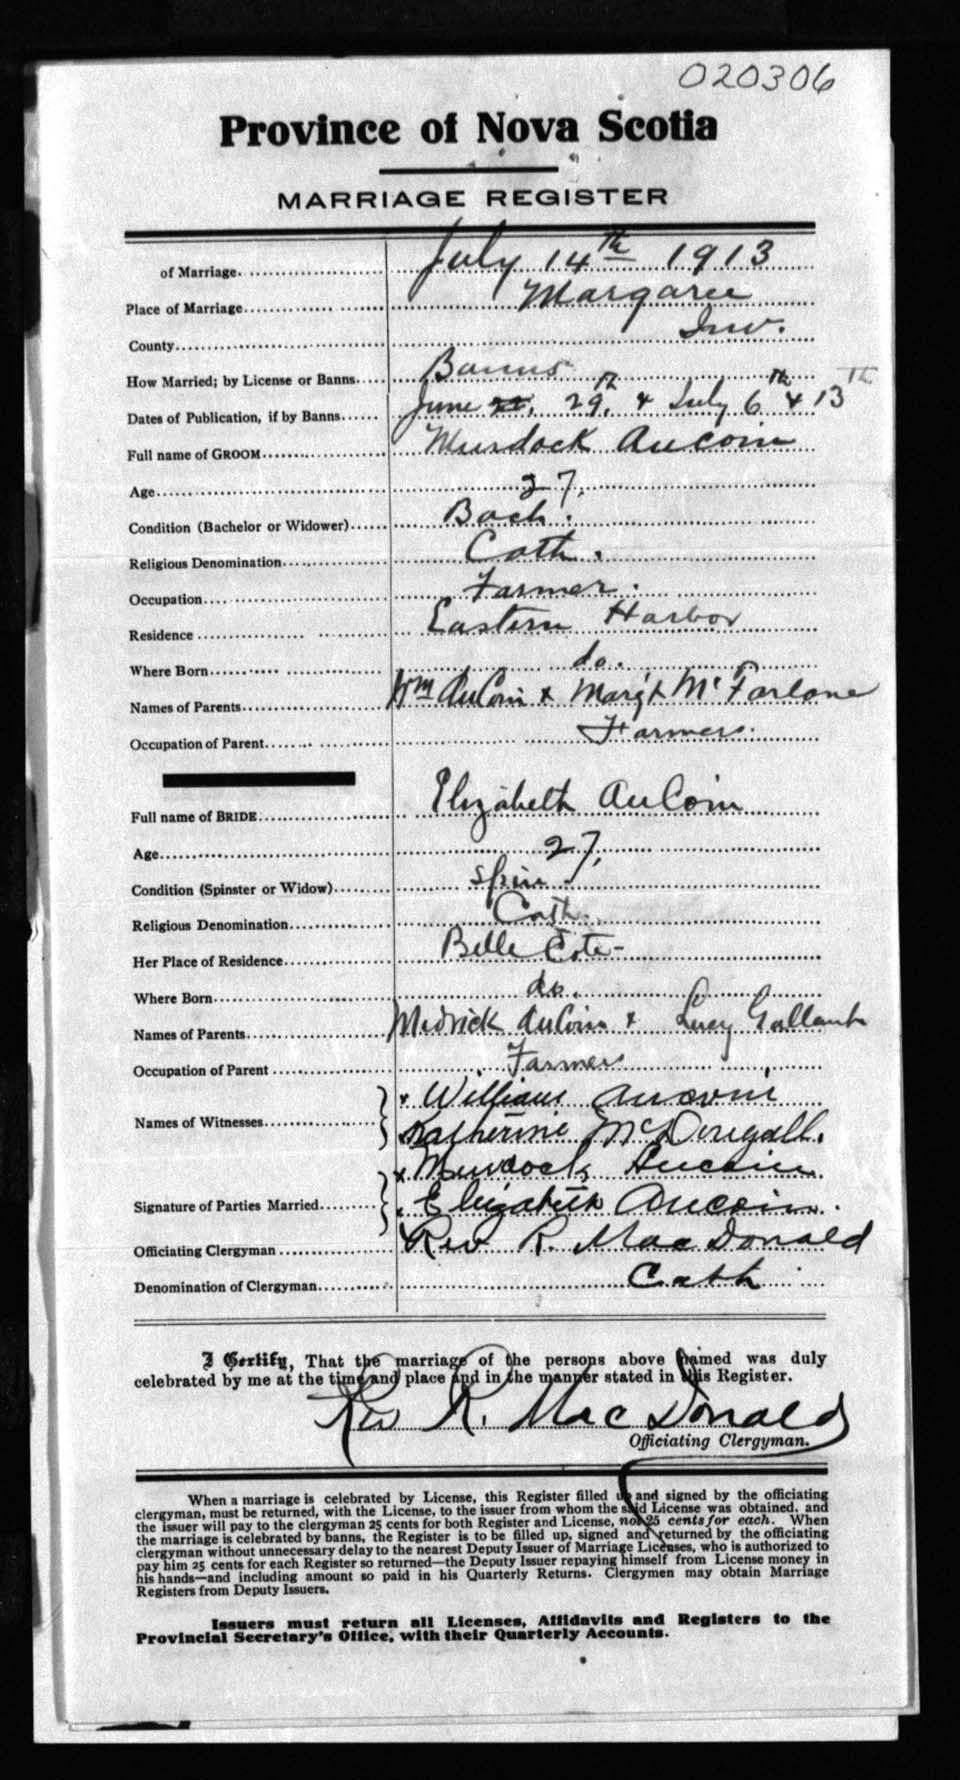 020306
Province of Nova Scotia
MARRIAGE REGISTER
of Marriage July 14th 1913
Place of Marriage Margaree
County Inv.
How Married; by License or Banns Banns
Dates of Publication, if by Banns June 29th, & July 6th & 13TH
Full name of GROOM Murdock AuCoin
Age 27,
Condition (Bachelor or Widower) Bach.
Religious Denomination Cath.
Occupation Farmer.
Residence Eastern Harbor
Where Born do.
Names of Parents Wm AuCoin & Marg't McFarlane
Occupation of Parent Farmers.
Full name of BRIDE Elizabeth AuCoin
Age 27,
Condition (Spinster or Widow) Spin.
Religious Denomination Cath.
Her Place of Residence Belle Cote
Where Born do.
Names of Parents Medrick AuCoin & Lucy Gallant
Occupation of Parent Farmers
Names of Witnesses x William Aucoin
Katherine McDougall.
x Murdock Aucoin
Signature of Parties Married Elizabeth Aucoin.
Officiating Clergyman Rev R. MacDonald
Denomination of Clergyman Cath
I Certify, That the marriage of the persons above named was duly
celebrated by me at the time and place and in the manner stated in this Register.
Rev R. MacDonald
Officiating Clergyman.
When a marriage is celebrated by License, this Register filled up and signed by the officiating
clergyman, must be returned, with the License, to the issuer from whom the said License was obtained, and
the issuer will pay to the clergyman 25 cents for both Register and License, not 25 cents for each. When
the marriage is celebrated by banns, the Register is to be filled up, signed and returned by the officiating
clergyman without unnecessary delay to the nearest Deputy Issuer of Marriage Licenses, who is authorized to
pay him 25 cents for each Register so returned—the Deputy Issuer repaying himself from License money in
his hands—and including amount so paid in his Quarterly Returns. Clergymen may obtain Marriage
Registers from Deputy Issuers.
Issuers must return all Licenses, Affidavits and Registers to the
Provincial Secretary's Office, with their Quarterly Accounts.